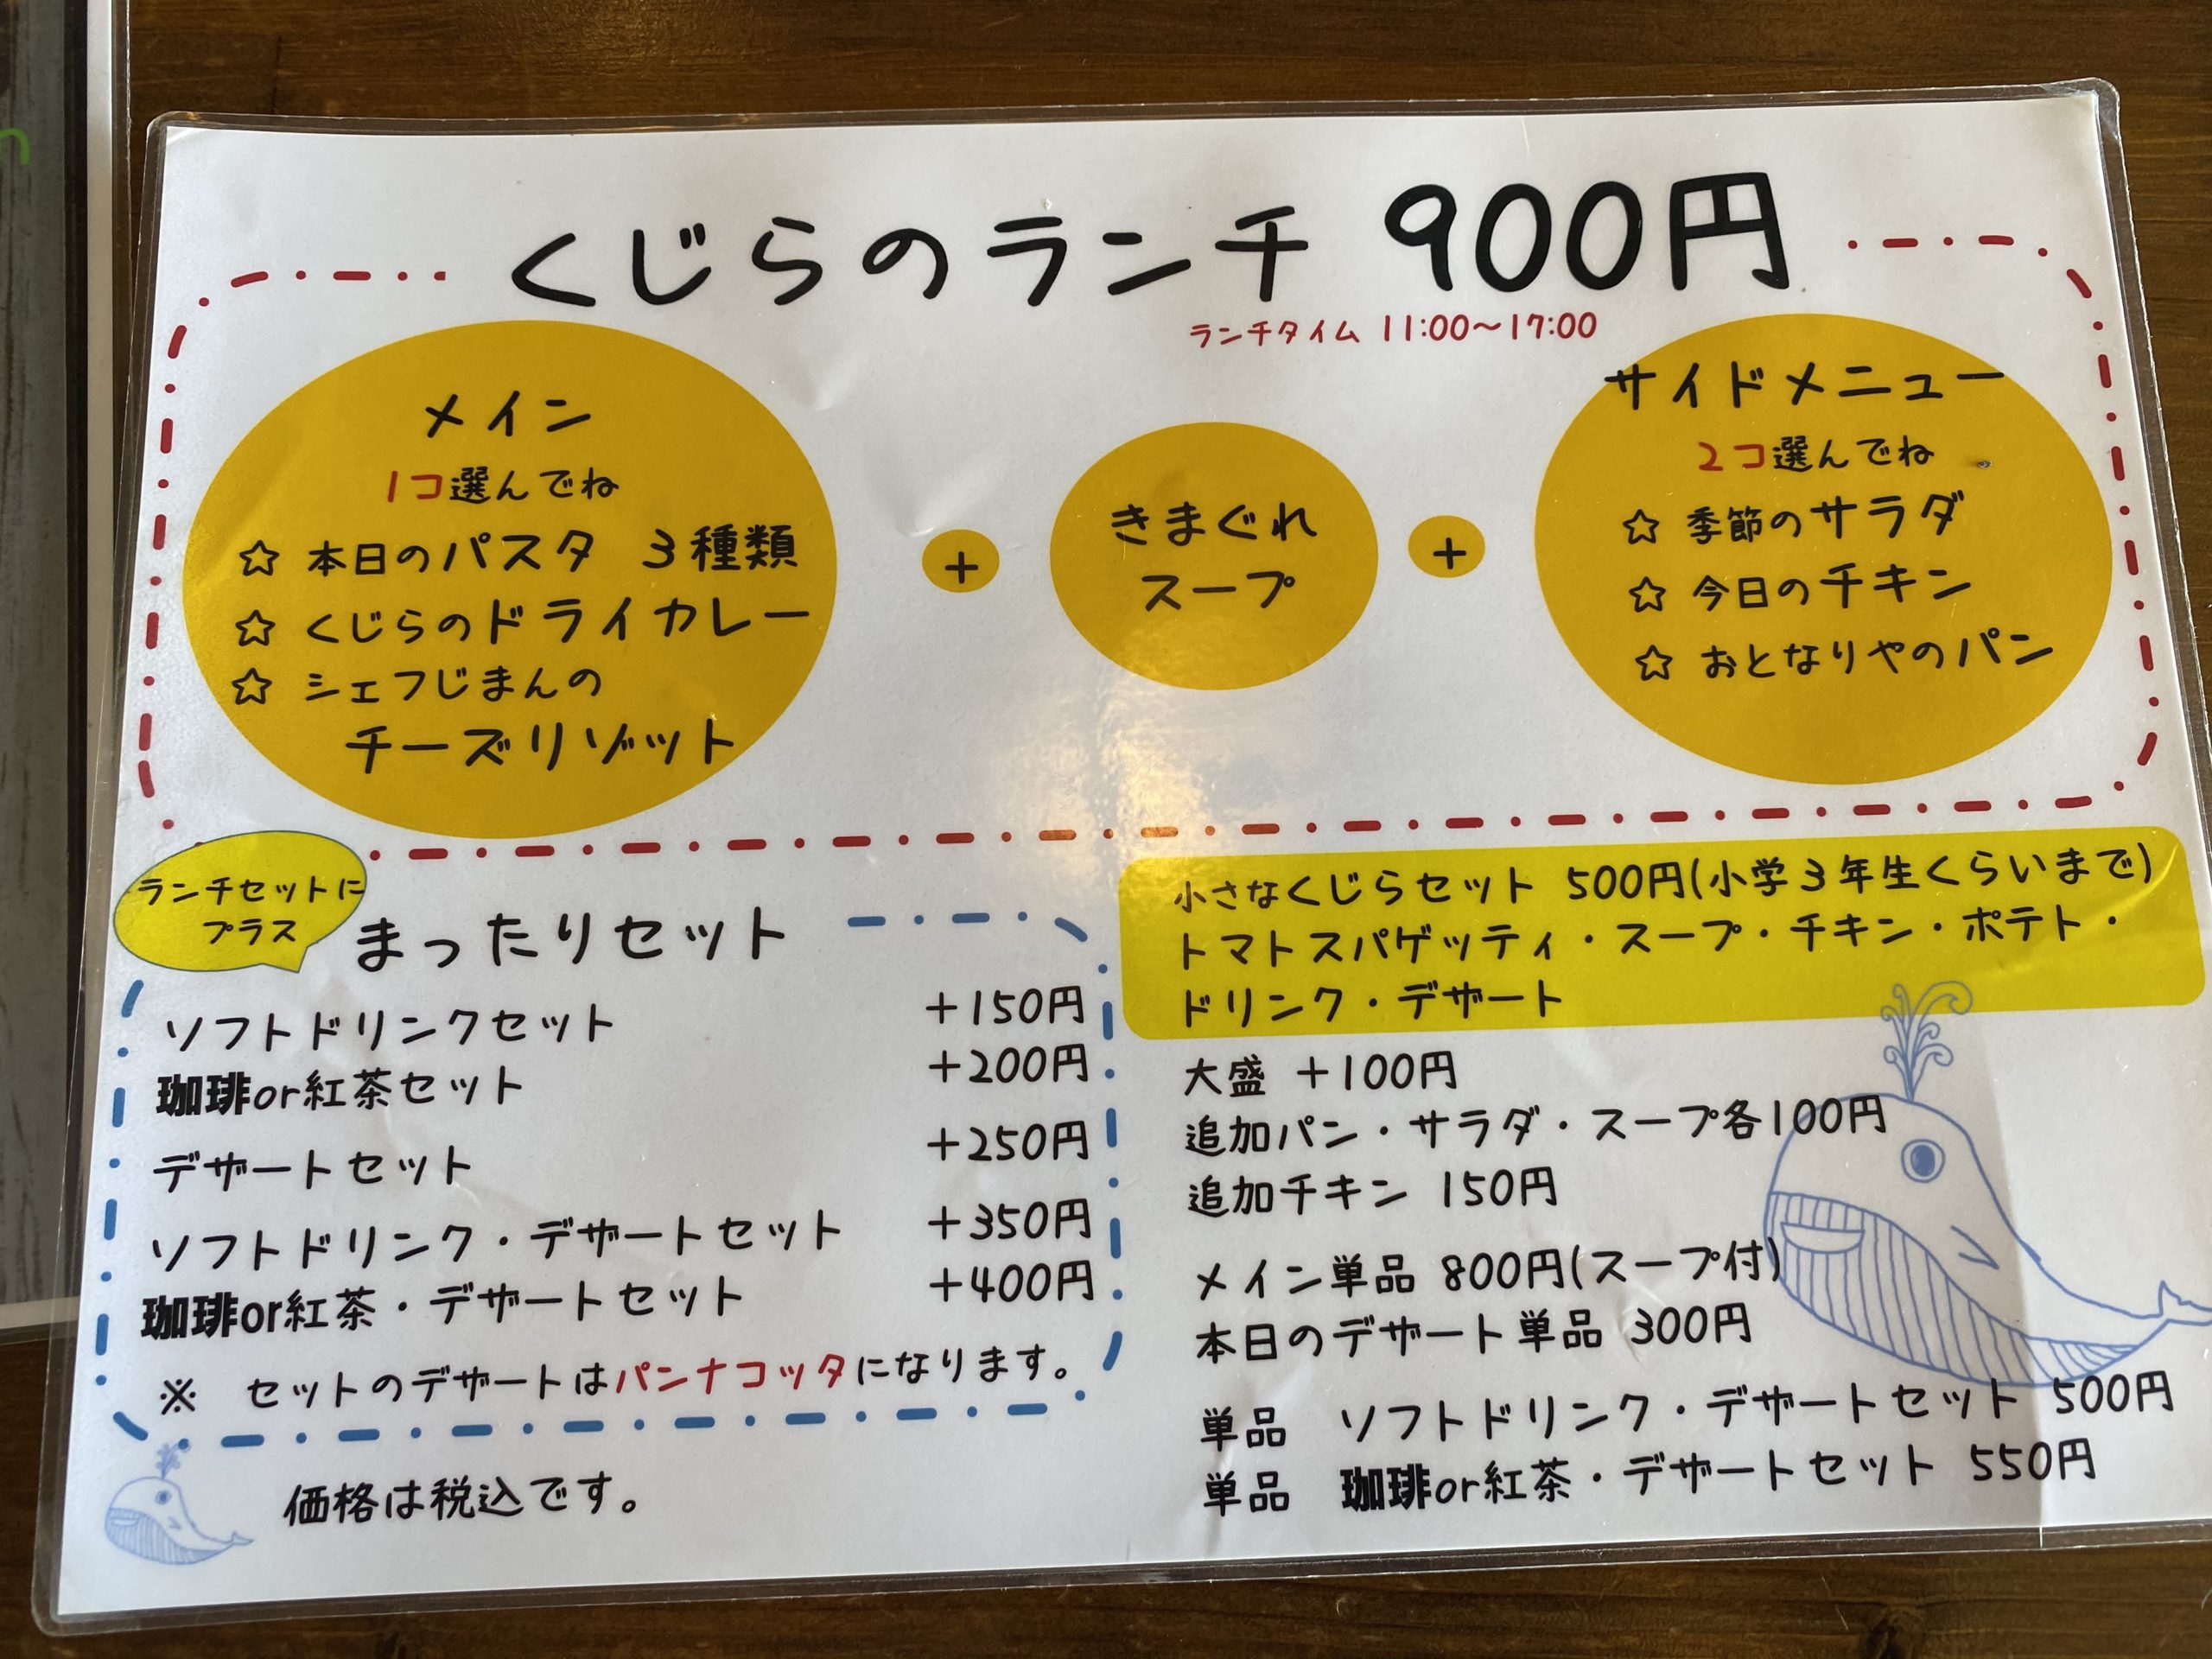 くじらのランチ 900円
ランチタイム 11:00～17:00
メイン
1コ選んでね
☆ 本日のパスタ 3種類
☆ くじらのドライカレー
☆ シェフじまんの
チーズリゾット
+
きまぐれ
スープ
+
サイドメニュー
2コ選んでね
☆ 季節のサラダ
☆ 今日のチキン
☆ おとなりやのパン
ランチセットに
プラス
まったりセット
ソフトドリンクセット +150円
珈琲or紅茶セット +200円
デザートセット +250円
ソフトドリンク・デザートセット +350円
珈琲or紅茶・デザートセット +400円
※ セットのデザートはパンナコッタになります。
価格は税込です。
小さなくじらセット 500円(小学3年生くらいまで)
トマトスパゲッティ・スープ・チキン・ポテト・
ドリンク・デザート
大盛 +100円
追加パン・サラダ・スープ各100円
追加チキン 150円
メイン単品 800円(スープ付)
本日のデザート単品 300円
単品 ソフトドリンク・デザートセット 500円
単品 珈琲or紅茶・デザートセット 550円